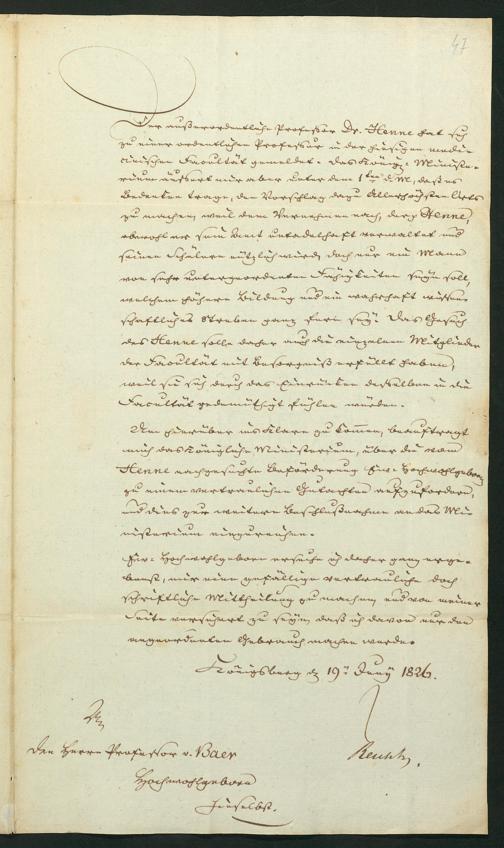 47
Der außerordentliche Professor Dr. Henne hat sich
zu einer ordentlichen Professur in der hiesigen medi-
cinischen Facultät gemeldet. Das Königl. Ministe-
rium äußert mir aber unter dem 1ten d. M., daß es
Bedenken trage, den Vorschlag dazu Allerhöchsten Orts
zu machen, weil dem Vernehmen nach, der p Henne,
obwohl er sein Amt untadelhaft verwaltet und
seinen Schülern nützlich würde, doch nur ein Mann
von sehr untergeordneten Fähigkeiten seyn soll,
welchem höhere Bildung und ein wahrhaft wissen-
schaftliches Streben ganz fern sey. Das Gesuch
des Henne solle daher auch die einzelnen Mitglieder
der Facultät mit Besorgniß erfüllt haben,
weil sie sich durch das Einrücken desselben in die
Facultät gedemüthigt fühlen würden.
Um hierüber ins Klare zu kommen, beauftragt
mich das Königliche Ministerium, über die vom
Henne nachgesuchte Beförderung Ew. Hochwohlgeboren
zu einem vertraulichen Gutachten aufzufordern,
und dies zur weitern Beschlußnahme an das Mi-
nisterium einzureichen.
Ew. Hochwohlgeboren ersuche ich daher ganz erge-
benst, mir eine gefällige vertrauliche doch
schriftliche Mittheilung zu machen, und von meiner
Seite versichert zu seyn, daß ich davon nur den
angeordneten Gebrauch machen werde.
Königsberg d 19n Juny 1826.
An
den Herrn Professor v. Baer
Hochwohlgeboren
hieselbst.
Reusch.